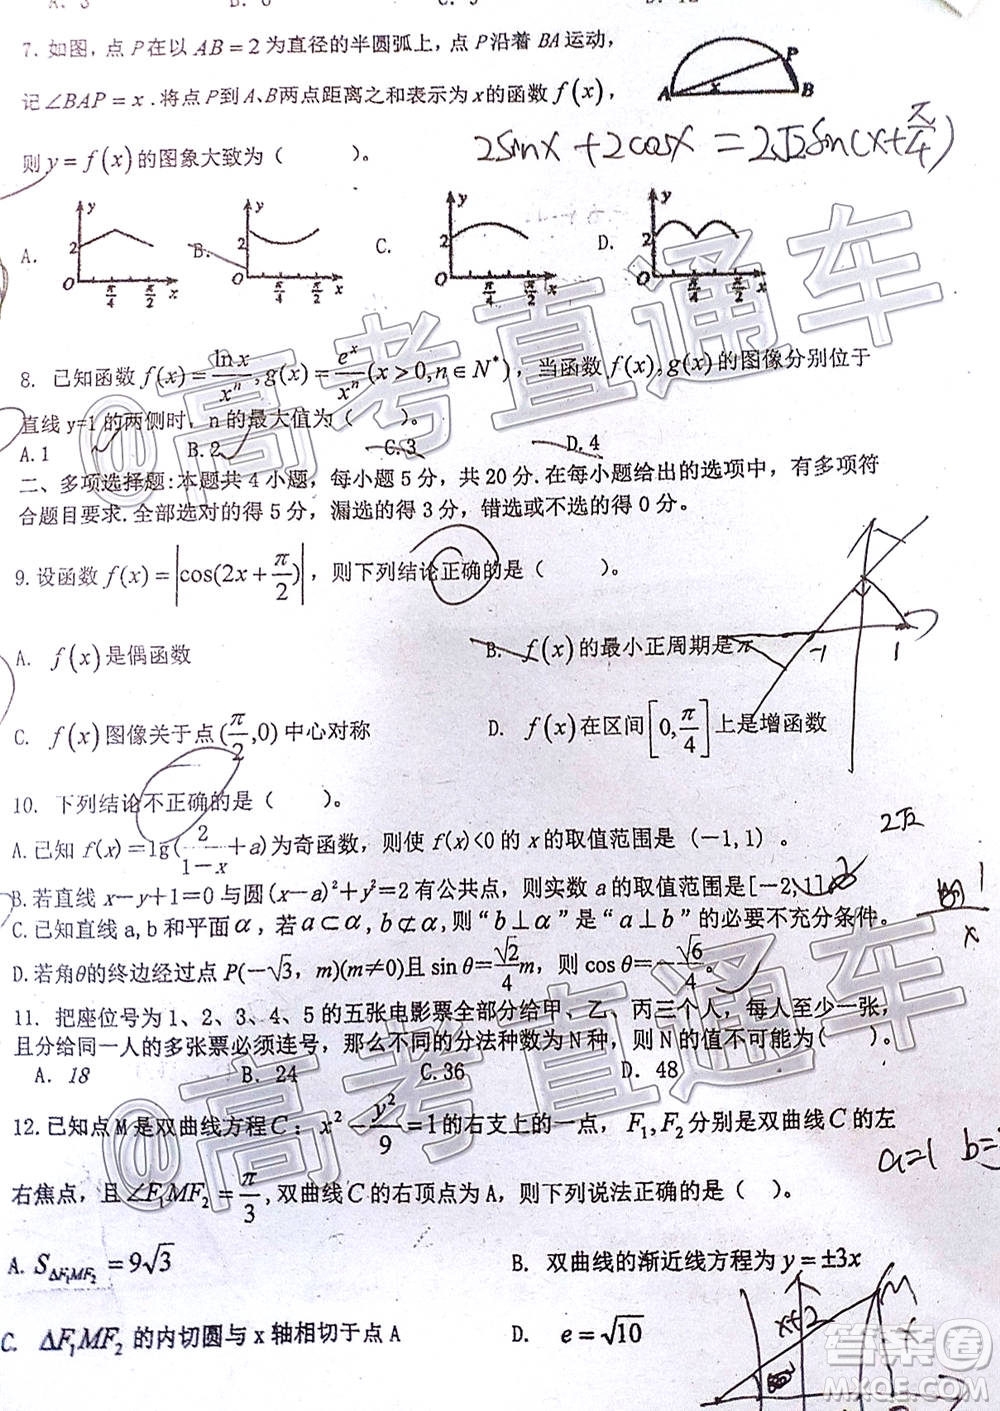 A. 3 B. 6 C. 9 D. 12
7. 如图，点 P 在以 AB = 2 为直径的半圆弧上，点 P 沿着 BA 运动，
记 ∠BAP = x . 将点 P 到 A、B 两点距离之和表示为 x 的函数 f(x)，
A x P B
2sinx + 2cosx = 2√2sin(x+π/4)
则 y = f(x) 的图象大致为（ ）。
A. y 2 O π/4 π/2 x B. y 2 O π/4 π/2 x C. y 2 O π/4 π/2 x D. y 2 O π/4 π/2 x
8. 已知函数 f(x) = lnx/x^n , g(x) = e^x/x^n (x > 0, n ∈ N*)，当函数 f(x), g(x) 的图像分别位于
直线 y=1 的两侧时，n 的最大值为（ ）。
A.1 B.2 C.3 D.4
二、多项选择题:本题共 4 小题，每小题 5 分，共 20 分.在每小题给出的选项中，有多项符
合题目要求.全部选对的得 5 分，漏选的得 3 分，错选或不选的得 0 分.
9.设函数 f(x) = |cos(2x + π/2)|，则下列结论正确的是（ ）。
A. f(x) 是偶函数 B. f(x) 的最小正周期是 π
-1 1
C. f(x) 图像关于点 (π/2, 0) 中心对称 D. f(x) 在区间 [0, π/4] 上是增函数
10. 下列结论不正确的是（ ）。
2√2
A.已知 f(x)=lg(2/(1-x) + a) 为奇函数，则使 f(x)<0 的 x 的取值范围是（-1,1）。
B.若直线 x-y+1=0 与圆(x-a)²+y²=2 有公共点，则实数 a 的取值范围是[-2,1]。
1
x
C.已知直线 a,b 和平面 α，若 a⊂α, b⊄α, 则 “b⊥α” 是 “a⊥b” 的必要不充分条件。
D.若角 θ 的终边经过点 P(-√3, m)(m≠0) 且 sin θ = √2/4 m，则 cos θ = -√6/4。
11. 把座位号为 1、2、3、4、5 的五张电影票全部分给甲、乙、丙三个人，每人至少一张，
且分给同一人的多张票必须连号，那么不同的分法种数为 N 种，则 N 的值不可能为（ ）。
A. 18 B. 24 C.36 D. 48
12.已知点 M 是双曲线方程 C：x² - y²/9 = 1 的右支上的一点，F₁,F₂ 分别是双曲线 C 的左
a=1 b=3
右焦点，且 ∠F₁MF₂ = π/3 , 双曲线 C 的右顶点为 A，则下列说法正确的是（ ）。
A. S△F₁MF₂ = 9√3 B. 双曲线的渐近线方程为 y = ±3x
C. △F₁MF₂ 的内切圆与 x 轴相切于点 A D. e = √10
x+2 M x
@高考直通车
@高考直通车
答案圈
MXQE.COM